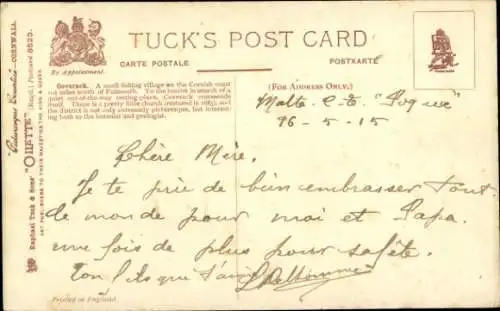 TUCK'S POST CARD
By Appointment.
CARTE POSTALE
POSTKARTE
"Picturesque Cornwall" CORNWALL.
Raphael Tuck & Sons' "OILETTE" [Regd.] Postcard 8623.
ART PUBLISHERS TO THEIR MAJESTIES THE KING & QUEEN.
Coverack. A small fishing village on the Cornish coast
miles south of Falmouth. To the tourist in search of a
quiet, out-of-the-way resting place, Coverack commends
itself. There is a pretty little church and
the district is not only extremely picturesque, but interest-
ing both to the botanist and geologist.
(FOR ADDRESS ONLY.)
Malta
-5-15
Chère Mère.
Je te prie de bien embrasser tout
le monde pour moi et Papa.
une fois de plus pour sa fête.
Ton fils que t'aime
Printed in England.